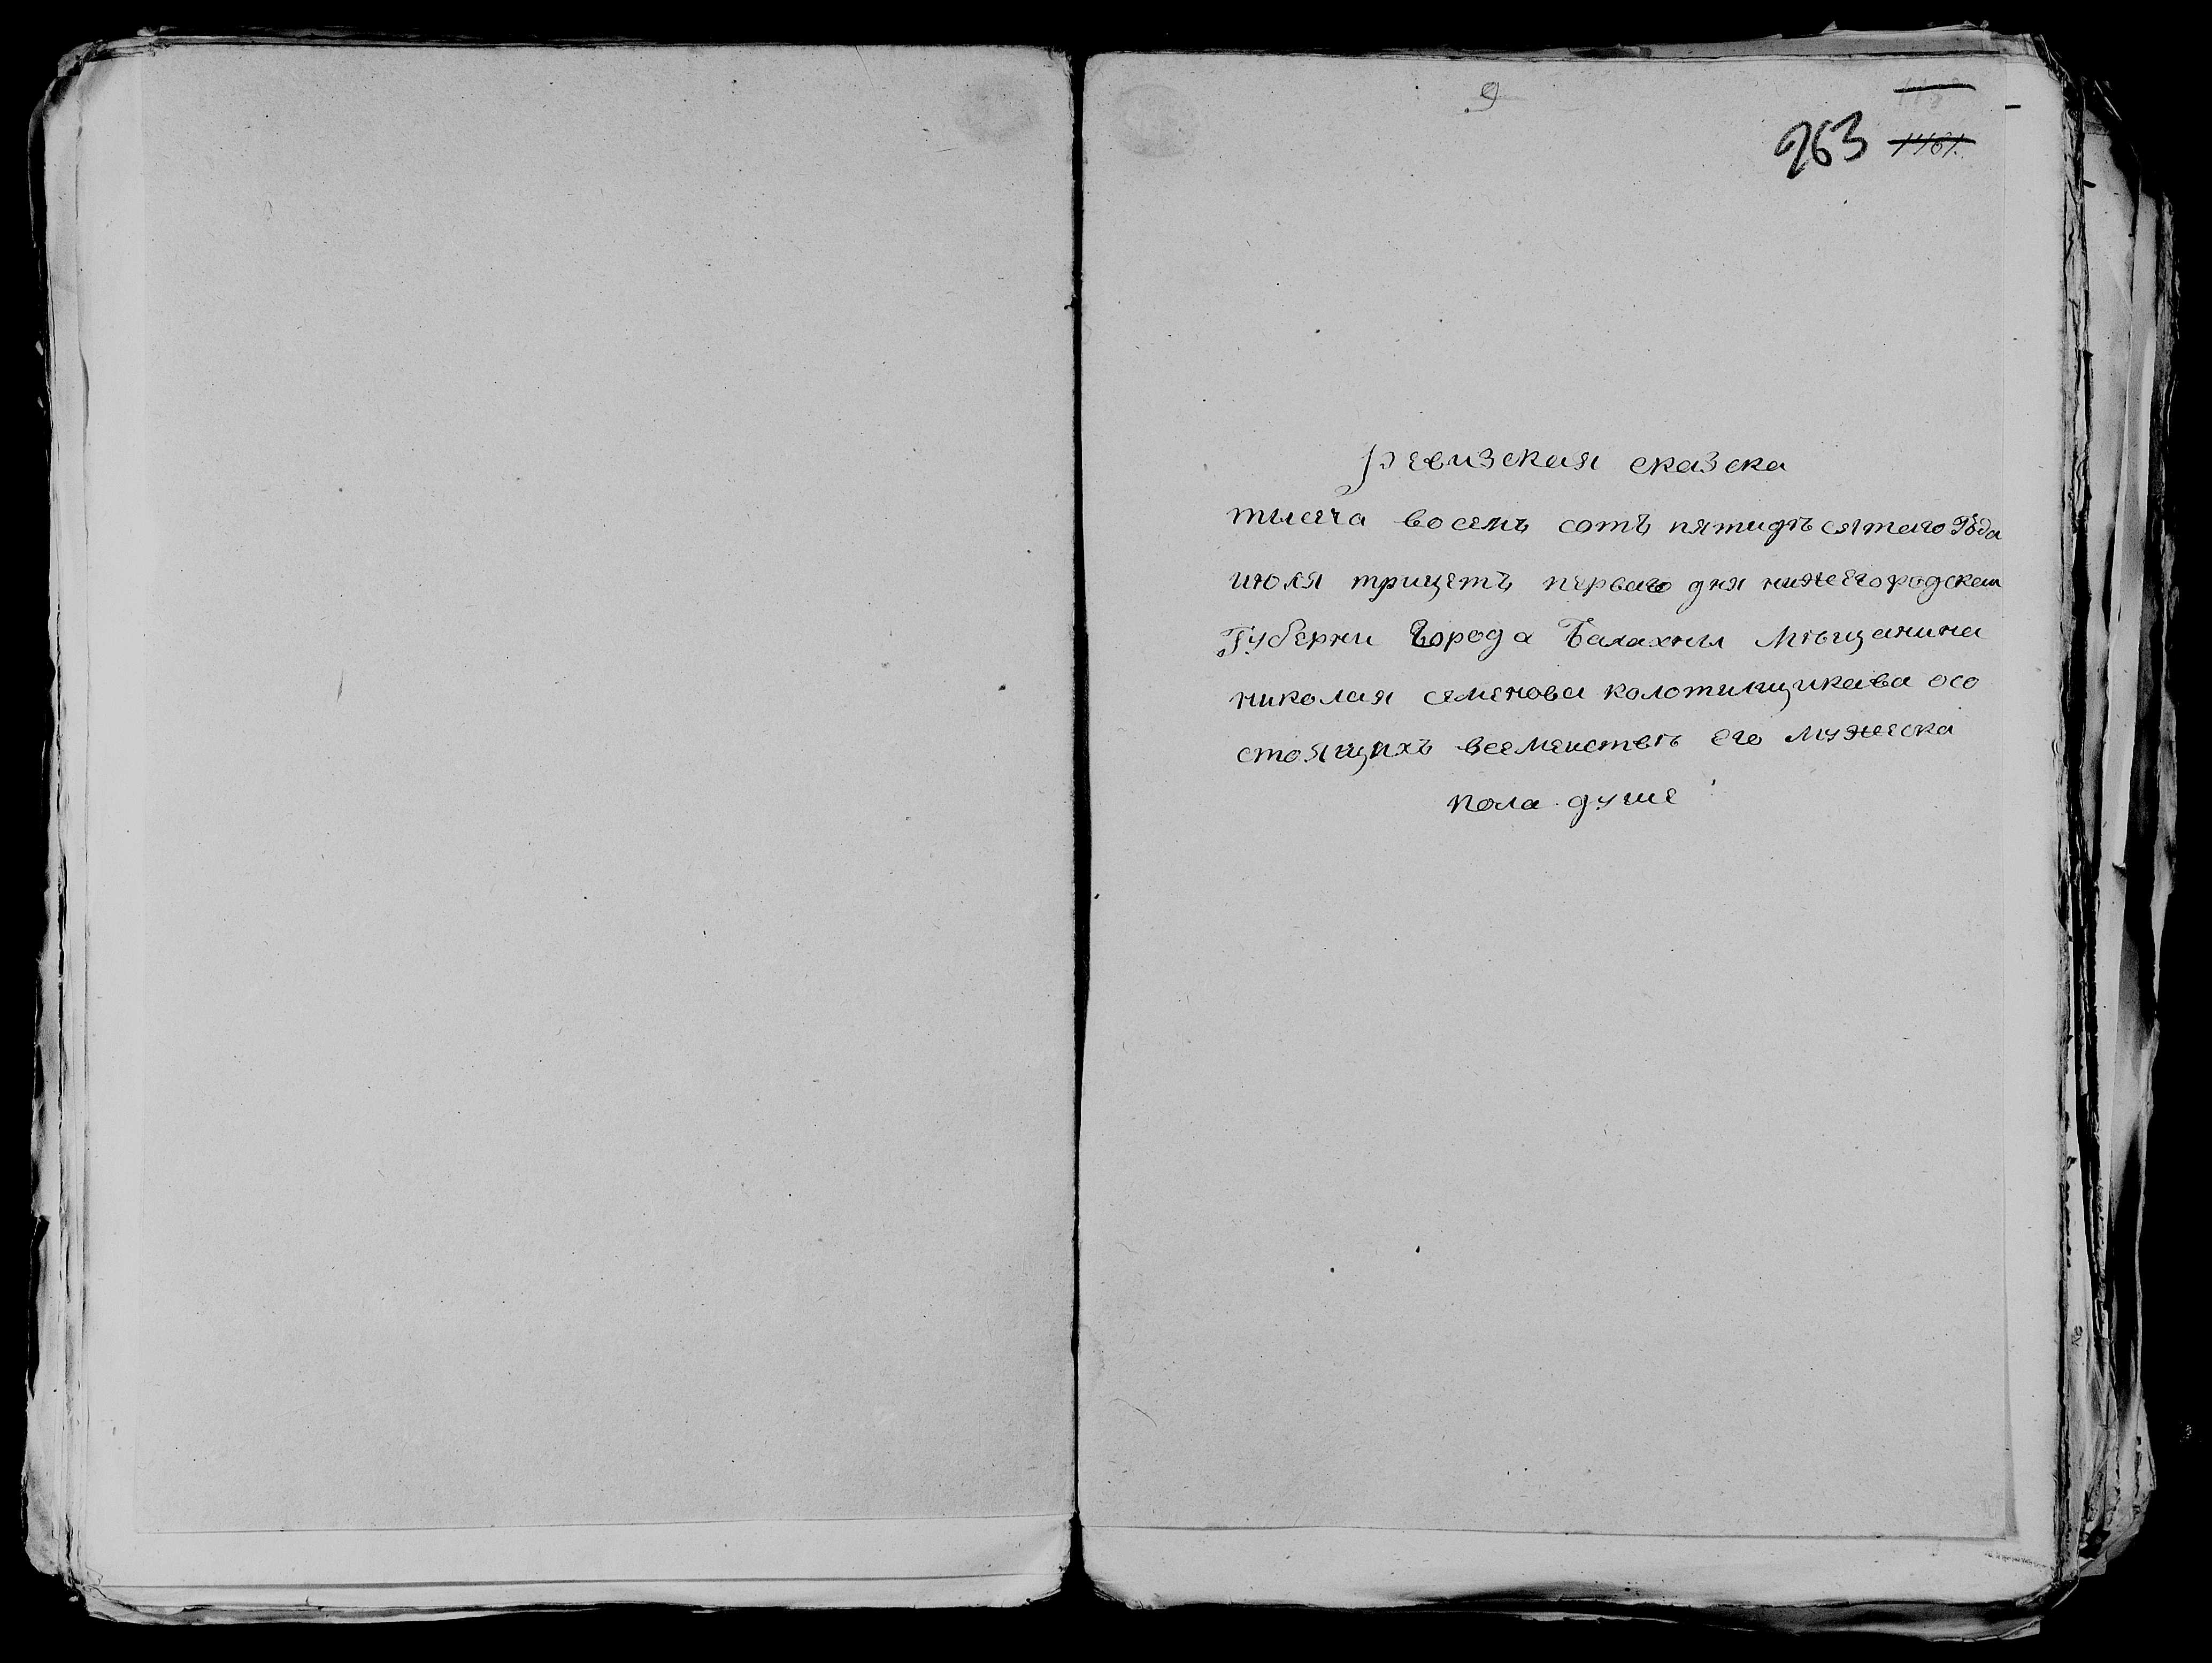 9
963 1161.
ревизская сказска
тысеча восемъ сотъ пятидѣсятаго Года
июля трицетъ перваго дня нижегородскаи
Губерни Города Балахны Мѣщанина
николая семенова колотильщикава осо
стоящихъ всемеиствѣ его мужеска
пола душе